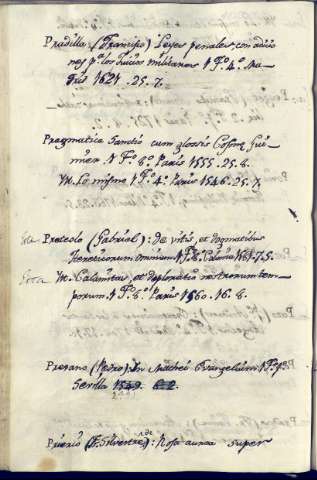 Pradilla (Francisco): Leyes penales, con adicio
nes pa. los Juicios militares 1 Tº. 4º. Ma-
drid 1621. 25. 7.
Pragmatica Sanctio cum glossis Cosmę Gui-
mier. 1 Tº. 8º. Paris 1555. 25. 8.
Yt. Lo mismo 1 Tº. 4º. Paris 1546. 25. 7.
Prateolo (Gabriel): De vitis, et dogmatibus
Hereticorum omnium 1 Tº. 8.
Yt. Calamitas, et deploratio nostrorum tem-
porum. 1 Tº. 8º. Paris 1560. 16. 8.
(Pedro): In Mathei Evangelium 1 Tº. 4º.
Sevilla
(F. Silvestre): Rosa aurea super